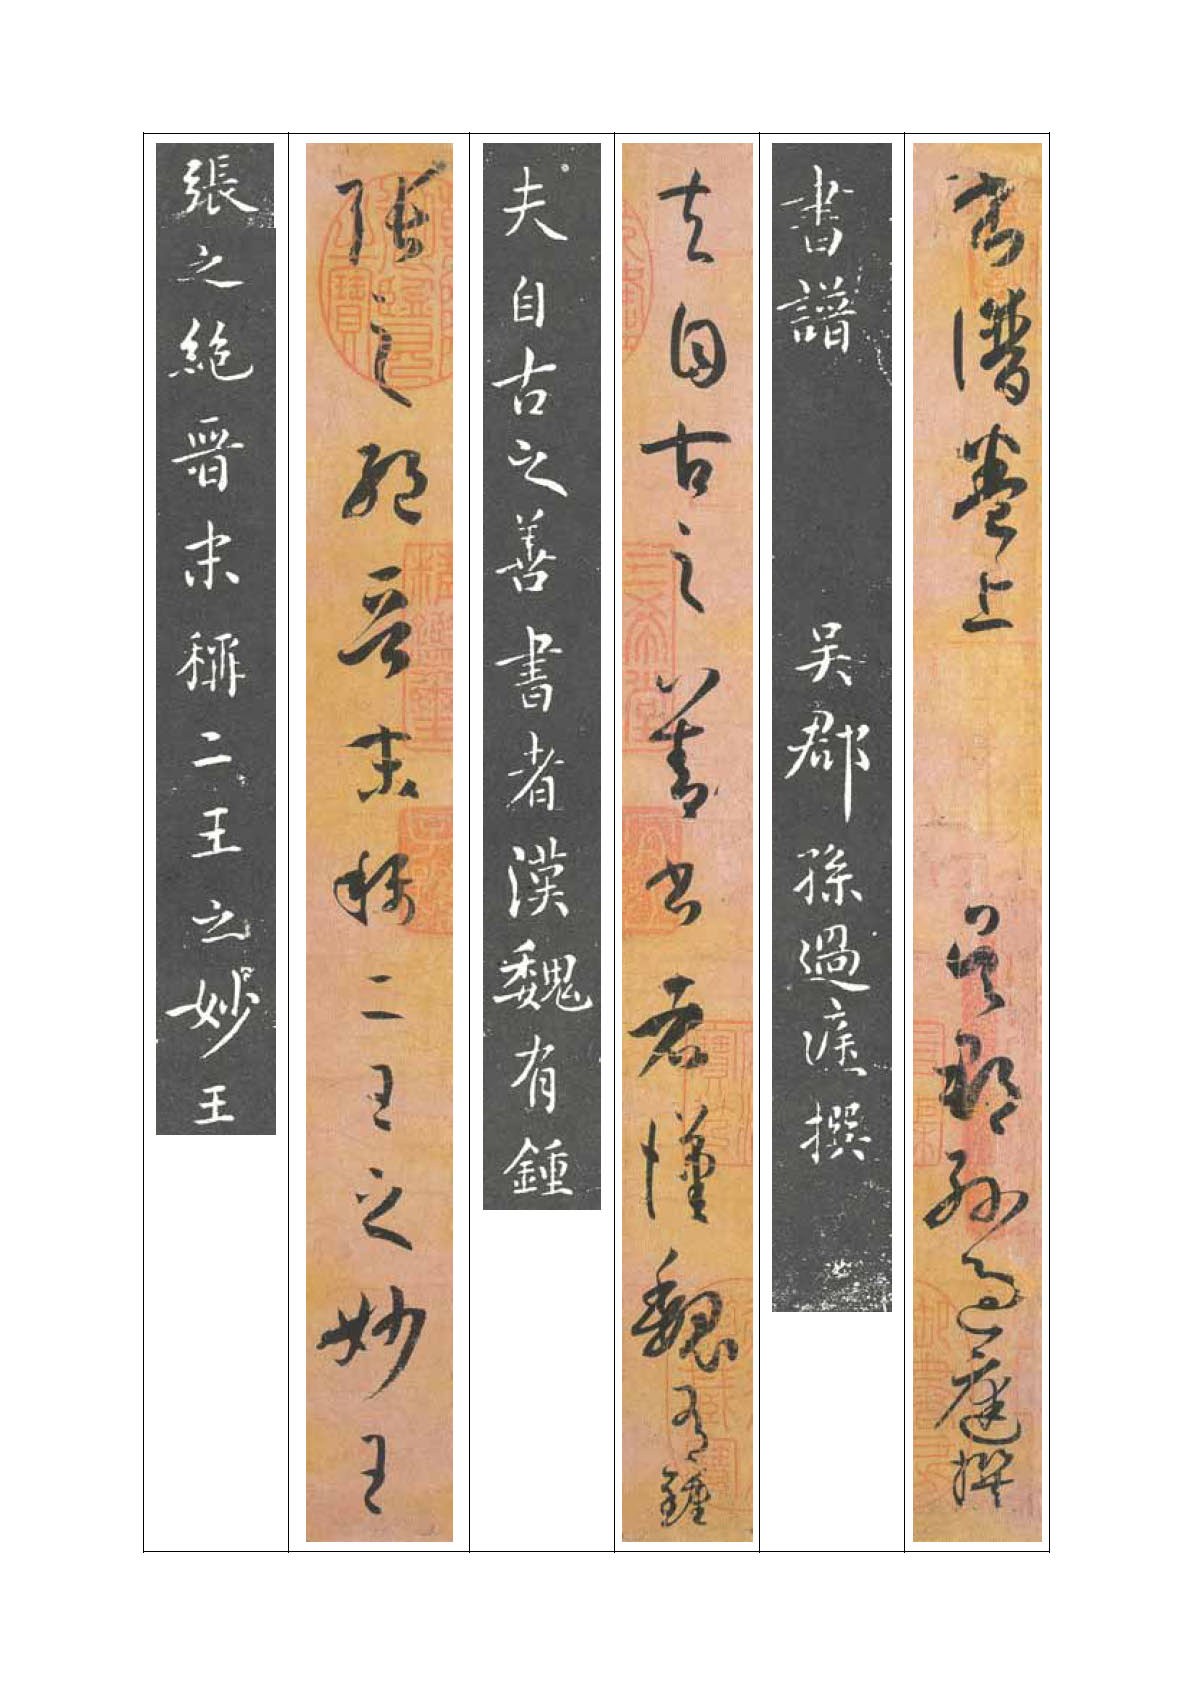 書譜卷上 吳郡孫過庭撰
書譜 吳郡孫過庭撰
夫自古之善書者漢魏有鍾
夫自古之善書者漢魏有鍾
張之絕晉末稱二王之妙王
張之絕晉末稱二王之妙王